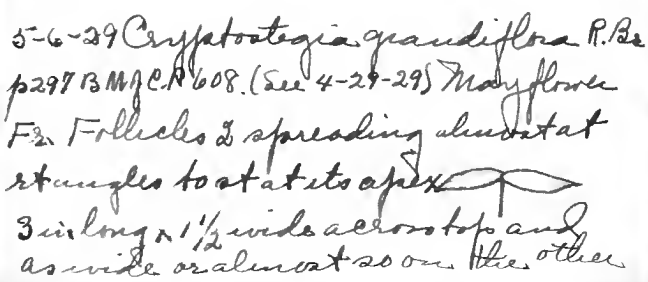 5-6-29 Cryptostegia grandiflora R.Br
p297 BMJC.R 608. (See 4-29-29) Mayflower
Fr. Follicles 2 spreading almost at
rt angles to st at its apex
3 in long x 1½ wide across top and
as wide or almost so on the other